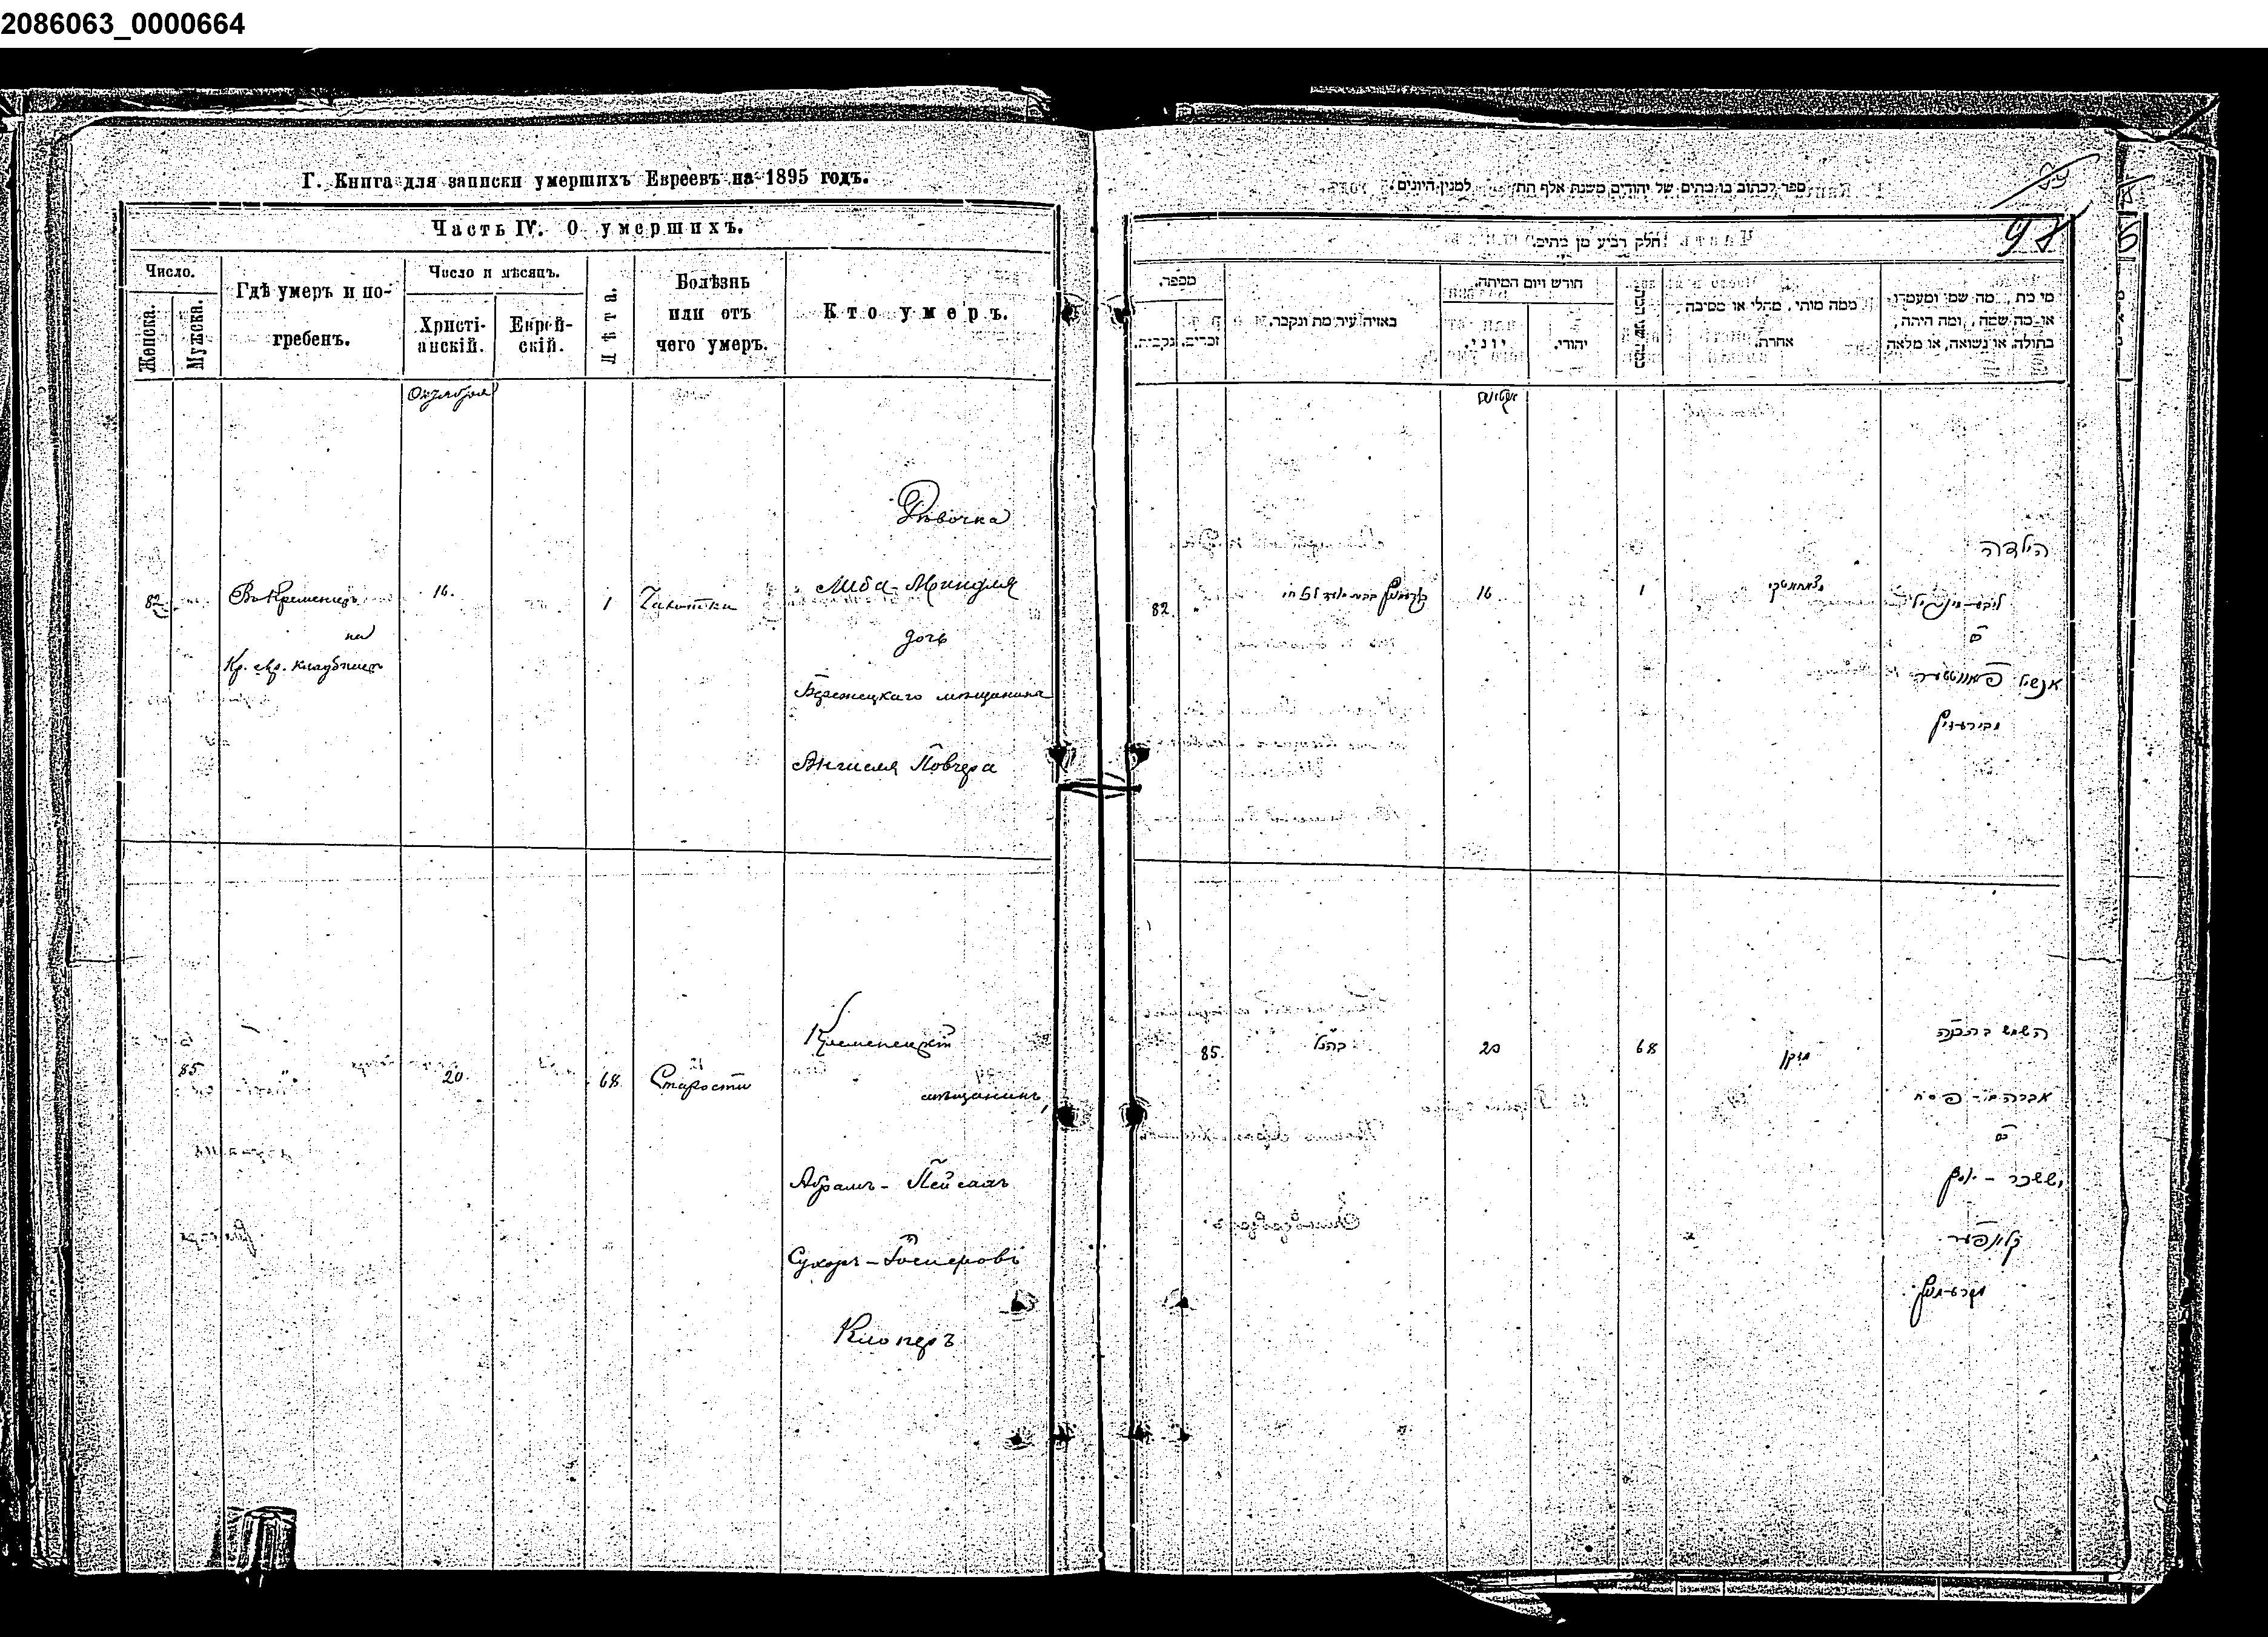 2086063_0000664
Г. Книга для записки умершихъ Евреевъ на 1895 годъ.
Часть IV. О умершихъ.
Число.
Женска.
Мужска.
Гдѣ умеръ и погребенъ.
Число и мѣсяцъ.
Христіанскій.
Еврейскій.
Лѣта.
Болѣзнь
или отъ
чего умеръ.
Кто умеръ.
Октября
82
Въ Кременцѣ
на
Кр. евр. кладбищѣ
16.
1
Чахотки
Дѣвочка
Либа-Миндля
дочь
Бережецкаго мѣщанина
Аншеля Повчера
85
20.
68.
Старости
Кременецкій
мѣщанинъ,
Абрамъ-Пейсахъ
Сухоръ-Іосиповъ
Клоперъ
ספר לכתוב בו מתים של יהודים משנת אלף תת למנין היונים.
98
חלק רביע מן מתים.
מספר.
זכרים.
נקבות.
באיזה עיר מת ונקבר.
חודש ויום המיתה.
יוני.
יהודי.
כמה שני המת
ממה מותו, מחלי או מסיבה
אחרת.
מי מת, מה שמו ומעמדו
או מה שמה, ומה היתה,
בתולה, או נשואה, או מלאה
82
16
1
הילדה
ליבע-מינדיל
אנשיל פאווטשער
85.
כהנ"ל
20
68
מזקן
אברהם-פסח
יששכר-יוסף
קלופער